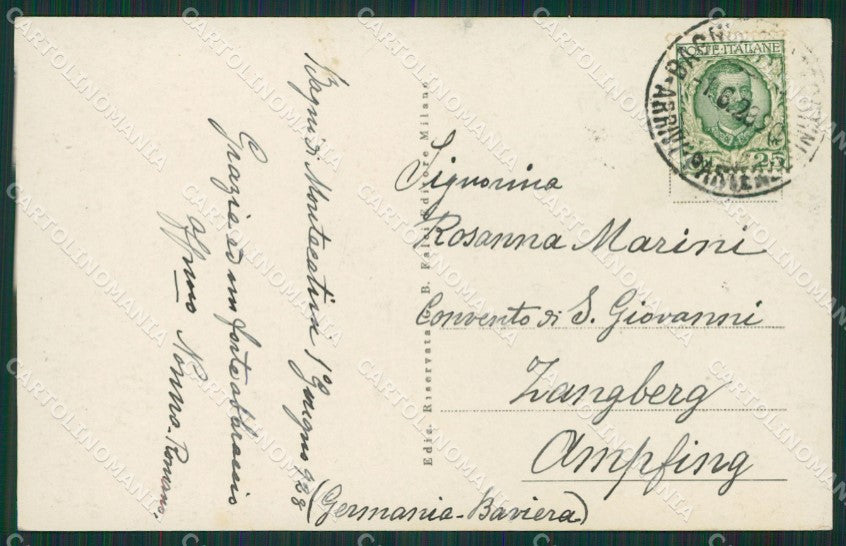 Bagni di Montecatini 1° Giugno 928
Grazie ed un forte abbraccio
Nonno Romano.
Ediz. Riservata B. Falci Editore Milano
POSTE ITALIANE
25
1.6.28
ARRIVI PARTENZE
Signorina
Rosanna Marini
Convento di S. Giovanni
Zangberg
Ampfing
(Germania-Baviera)
CARTOLINOMANIA